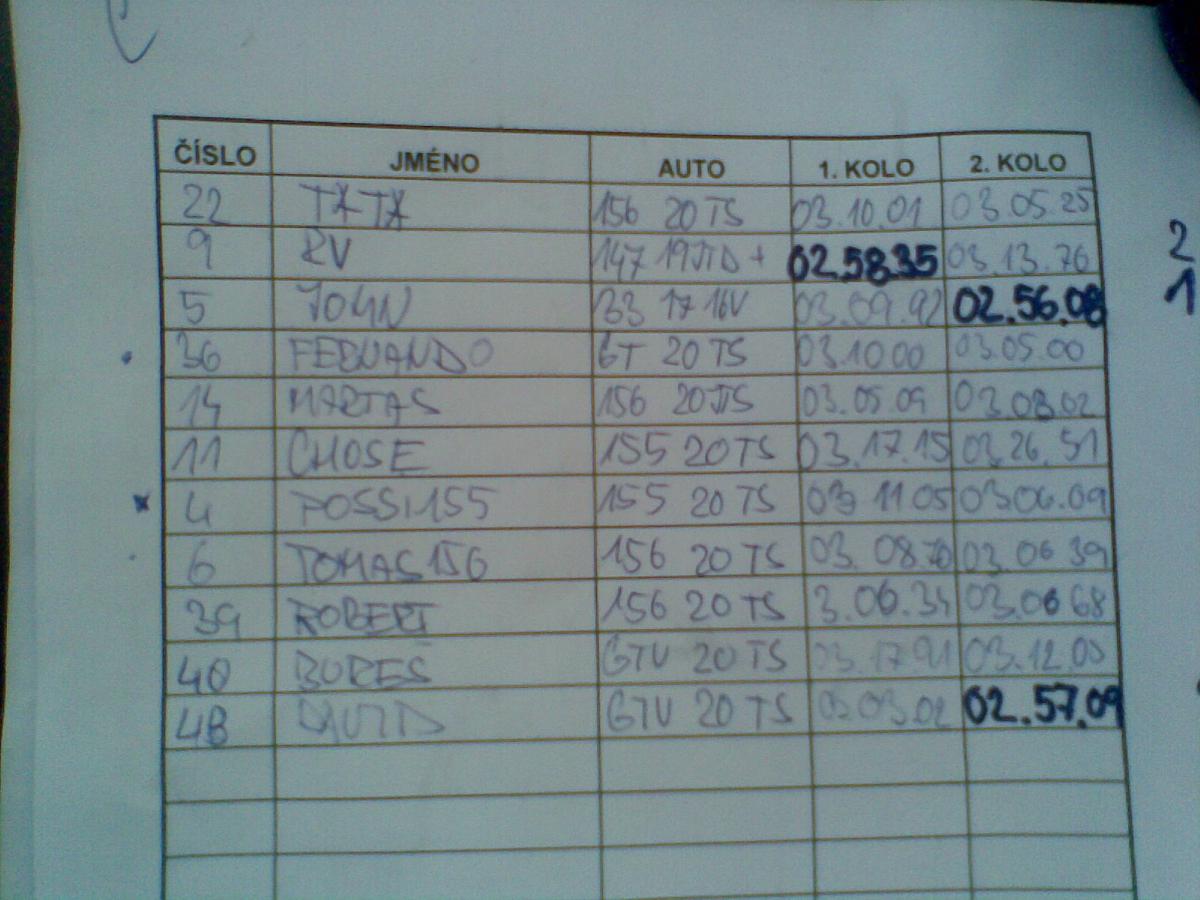 ČÍSLO JMÉNO AUTO 1. KOLO 2. KOLO
22 TATA 156 20 TS 03.10.01 03.05.25
9 RV 147 19JTD + 02.58.35 03.13.76 2
5 JOHN 33 17 16V 03.09.92 02.56.08 1
36 FERNANDO GT 20 TS 03.10 00 03.05.00
14 MARTAS 156 20JTS 03.05.09 03.08.02
11 CHOSE 155 20 TS 03.17.15 03.26.51
4 POSSI155 155 20 TS 03 11 05 03.06.09
6 TOMAS156 156 20 TS 03. 08 70 03.06 39
39 ROBERT 156 20 TS 3.06.34 03.06 68
40 BORES GTV 20 TS 03.17 91 03.12.00
48 DAVID GTV 20 TS 03 03.02 02.57.09